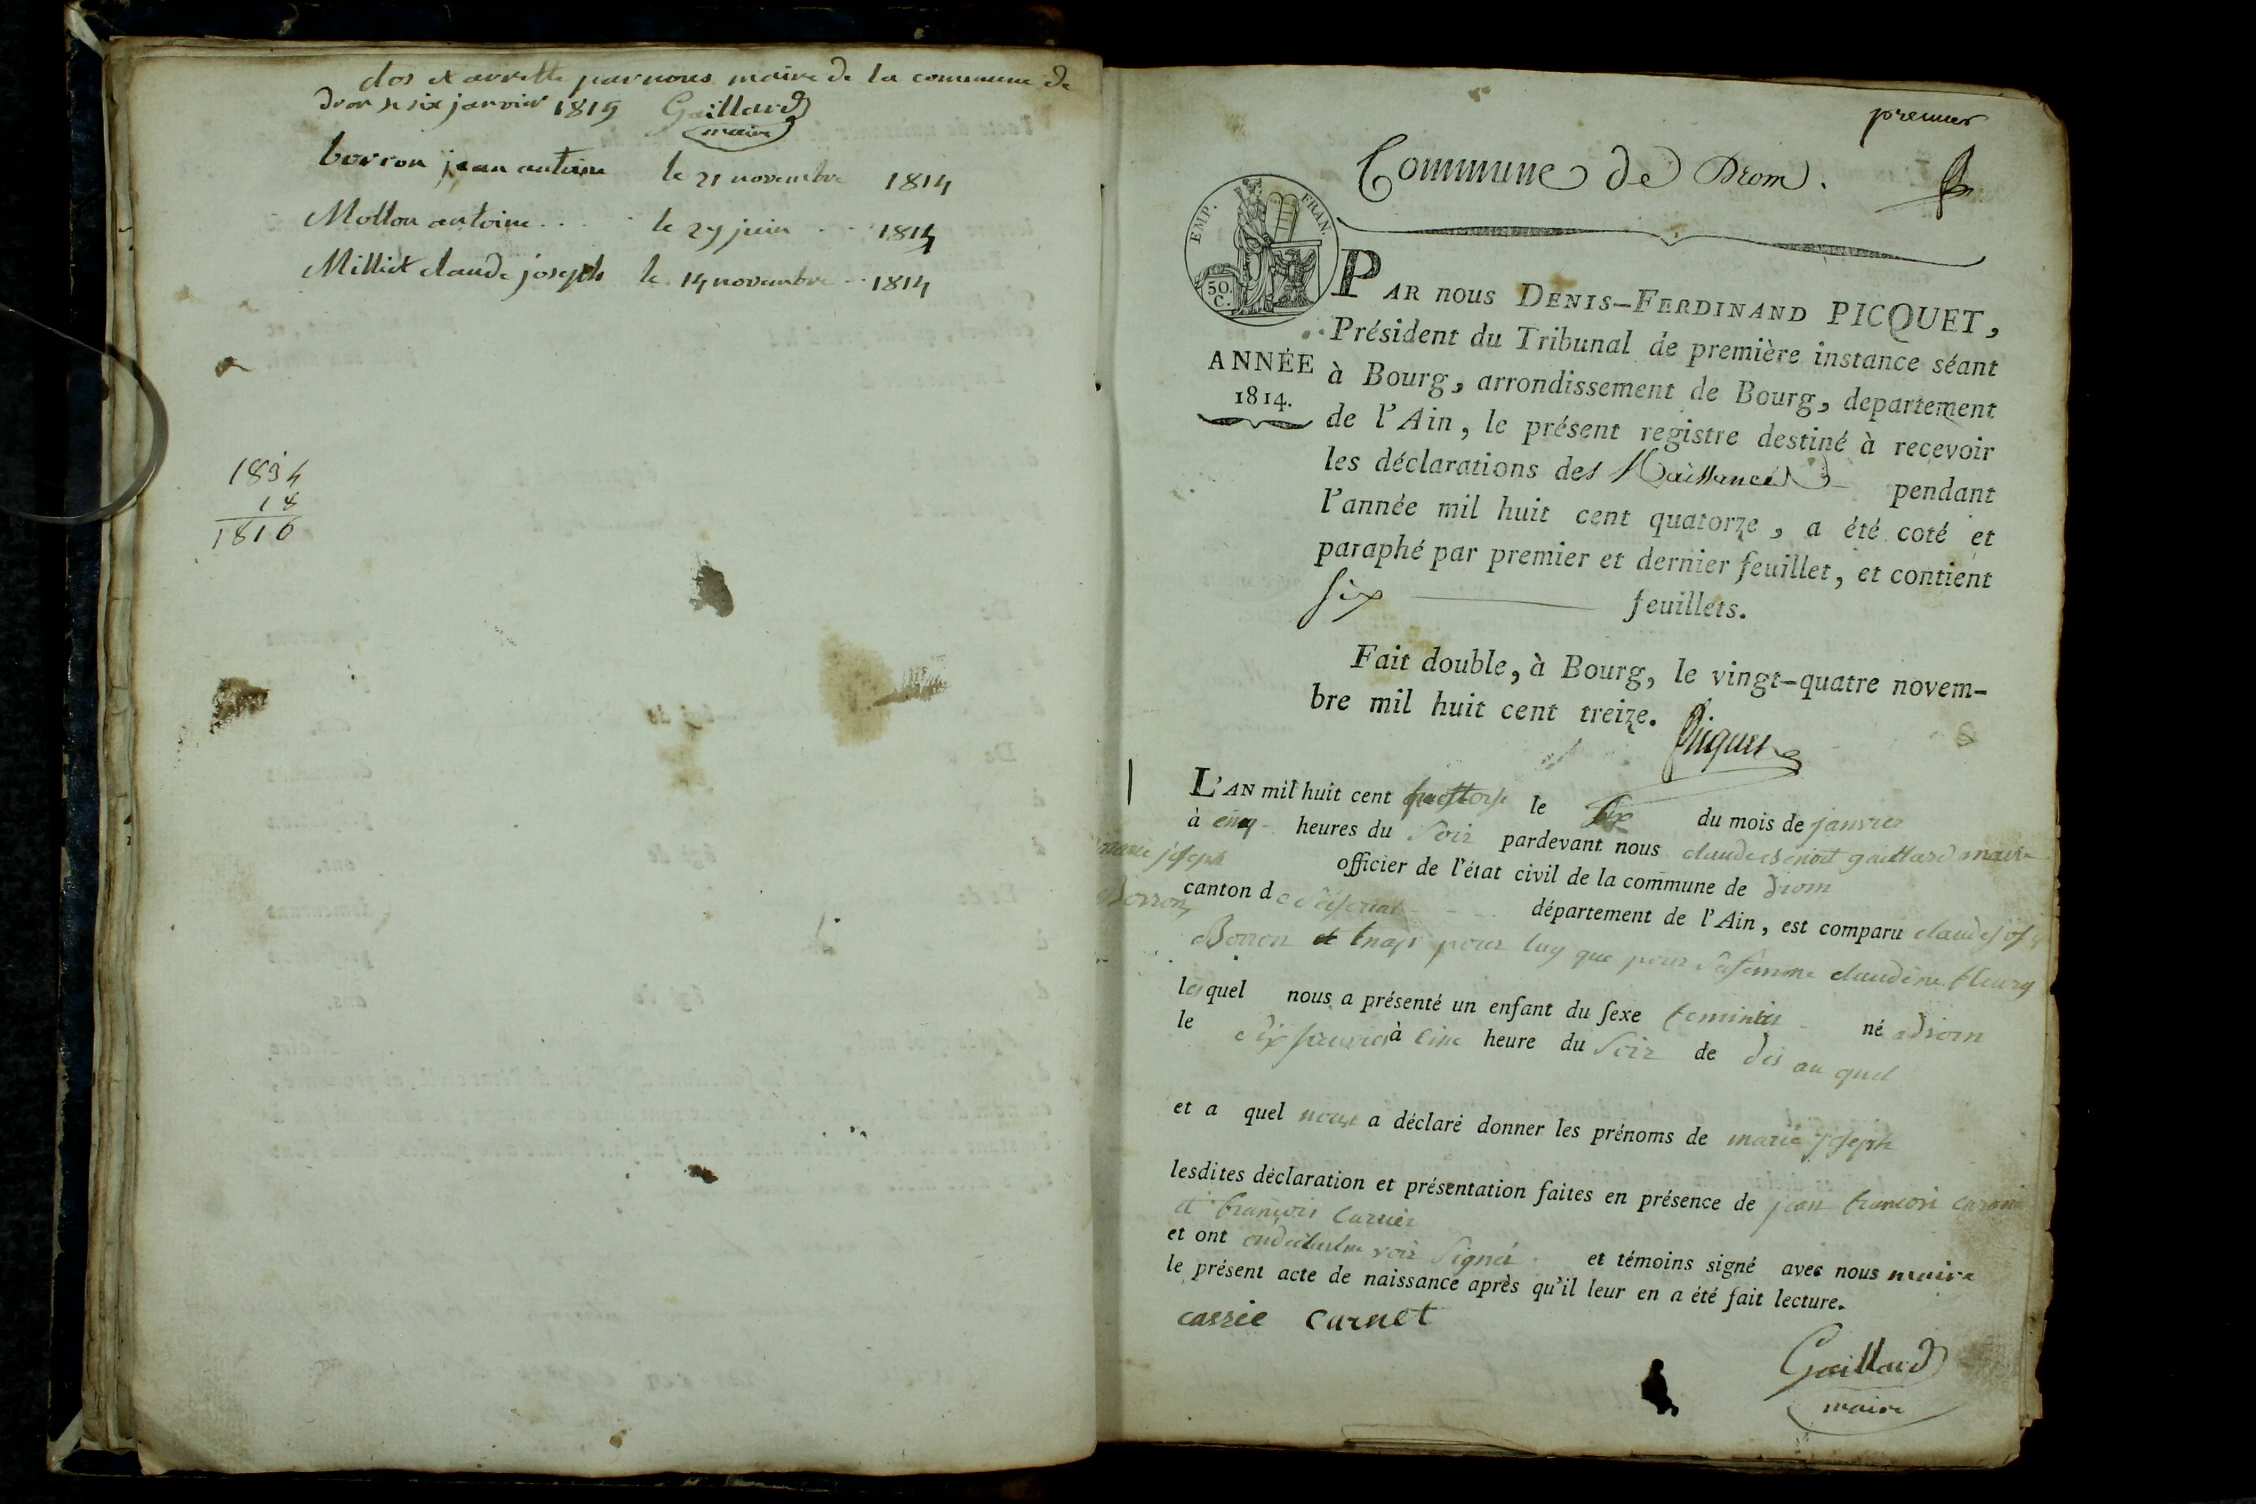 clos et arrette par nous maire de la commune de
drom le six janvier 1815 Gaillard
maire
borron jean antoine le 21 novembre 1814
Mollon antoine le 27 juin 1814
Milliet claude joseph le 14 novembre 1814
1834
18
1816
premier
Commune de Drom.
EMP. FRAN.
50
C.
ANNÉE
1814.
PAR nous DENIS-FERDINAND PICQUET,
Président du Tribunal de première instance séant
à Bourg, arrondissement de Bourg, departement
de l'Ain, le présent registre destiné à recevoir
les déclarations des Naissances pendant
l'année mil huit cent quatorze, a été coté et
paraphé par premier et dernier feuillet, et contient
six feuillets.
Fait double, à Bourg, le vingt-quatre novem-
bre mil huit cent treize.
Picquet
1
L'AN mil huit cent quattorse le six du mois de janvier
à cinq heures du soir pardevant nous claude benoit gaillard maire
marie joseph
Borron
officier de l'état civil de la commune de drom
canton de département de l'Ain, est comparu claude
Borron et pour luy que pour sa femme claudine fleury
lesquel nous a présenté un enfant du sexe feminin né a drom
le six janvier à cinc heure du soir de dis au quel
et a quel nous a déclaré donner les prénoms de marie joseph
lesdites déclaration et présentation faites en présence de jean francois
et francois carrier
et ont signer et témoins signé avec nous maire
le présent acte de naissance après qu'il leur en a été fait lecture.
carrie carnet
Gaillard
maire